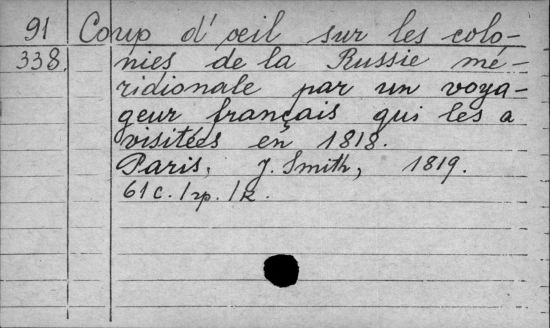 91 Coup d'œil sur les colo-
338. nies de la Russie mé-
ridionale par un voya-
geur français qui les a
visitées en 1818.
Paris, J. Smith, 1819.
61 c. 1 гр. 1 к.